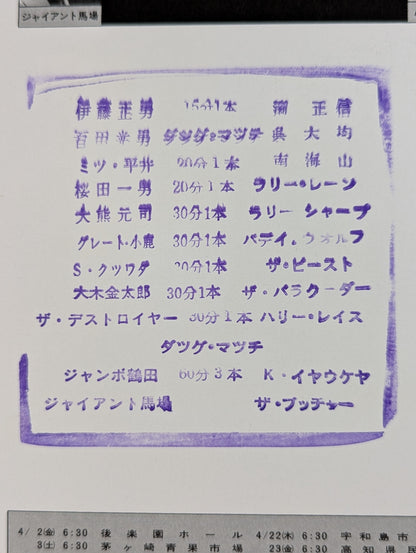 ジャイアント馬場
伊藤正男 15分1本 淵 正信
百田光男 タッグ・マッチ 呉大均
ミツ・平井 20分1本 南海山
桜田一男 20分1本 ラリー・レーン
大熊元司 30分1本 ラリー シャープ
グレート・小鹿 30分1本 バディ・ウオルフ
S・クツワダ 30分1本 ザ・ビースト
大木金太郎 30分1本 ザ・パラクーダー
ザ・デストロイヤー 30分1本 ハリー・レイス
タツグ・マツチ
ジャンボ鶴田 60分3本 K・イヤウケヤ
ジャイアント馬場 ザ・ブッチャー
4/ 2㊎ 6:30 後楽園ホール 4/22㊍ 6:30 宇和島市
3㊏ 6:30 茅ヶ崎青果市場 23㊎ 6:30 高知県民